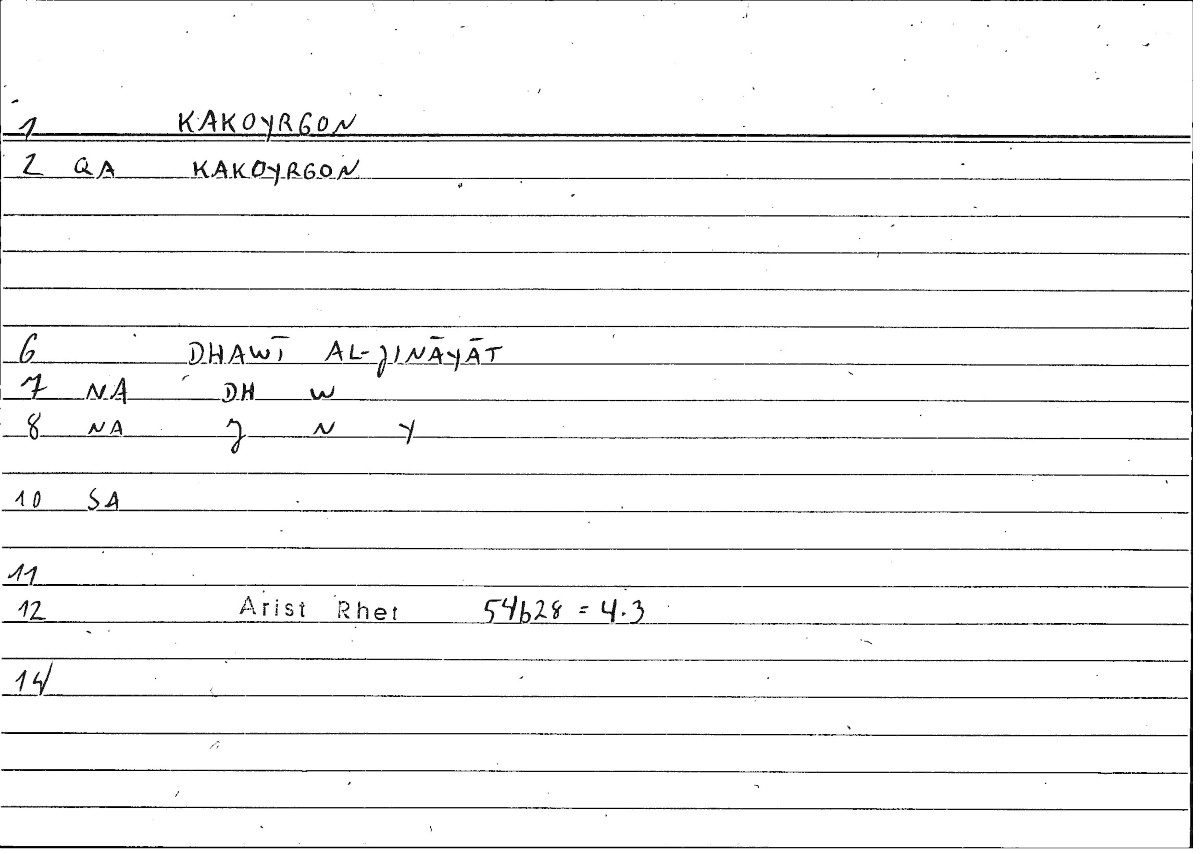 1 KAKOYRGON
2 QA KAKOYRGON
6 DHAWĪ AL-JINĀYĀT
7 NA DH W
8 NA J N Y
10 SA
11
12 Arist Rhet 54b28 = 4.3
14